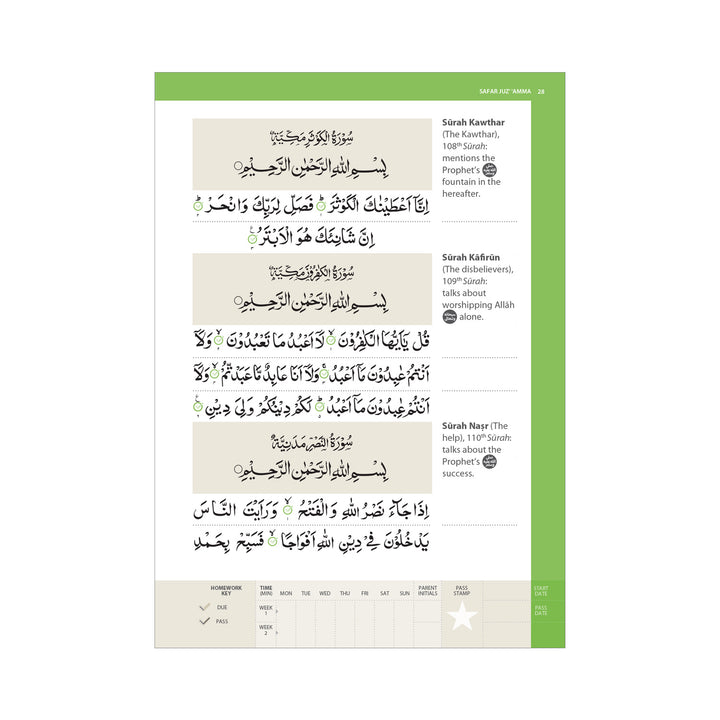 SAFAR JUZ' 'AMMA 28
سُوْرَةُ الْكَوْثَرِ مَكِّيَّةٌ
بِسْمِ اللهِ الرَّحْمٰنِ الرَّحِيْمِ
اِنَّاۤ اَعْطَيْنٰكَ الْكَوْثَرَ ؕ فَصَلِّ لِرَبِّكَ وَانْحَرْ ؕ
اِنَّ شَانِئَكَ هُوَ الْاَبْتَرُ
Sūrah Kawthar
(The Kawthar),
108th Sūrah:
mentions the
Prophet's
fountain in the
hereafter.
سُوْرَةُ الْكٰفِرُوْنَ مَكِّيَّةٌ
بِسْمِ اللهِ الرَّحْمٰنِ الرَّحِيْمِ
قُلْ يٰۤاَيُّهَا الْكٰفِرُوْنَ ۙ لَاۤ اَعْبُدُ مَا تَعْبُدُوْنَ ۙ وَلَاۤ
اَنْتُمْ عٰبِدُوْنَ مَاۤ اَعْبُدُ ۚ وَلَاۤ اَنَا عَابِدٌ مَّا عَبَدْتُّمْ ۙ وَلَاۤ
اَنْتُمْ عٰبِدُوْنَ مَاۤ اَعْبُدُ ؕ لَكُمْ دِيْنُكُمْ وَلِيَ دِيْنِ
Sūrah Kāfirūn
(The disbelievers),
109th Sūrah:
talks about
worshipping Allāh
alone.
سُوْرَةُ النَّصْرِ مَدَنِيَّةٌ
بِسْمِ اللهِ الرَّحْمٰنِ الرَّحِيْمِ
اِذَا جَآءَ نَصْرُ اللهِ وَالْفَتْحُ ۙ وَرَاَيْتَ النَّاسَ
يَدْخُلُوْنَ فِيْ دِيْنِ اللهِ اَفْوَاجًا ۙ فَسَبِّحْ بِحَمْدِ
Sūrah Naṣr (The
help), 110th Sūrah:
talks about the
Prophet's
success.
HOMEWORK KEY
DUE
PASS
TIME (MIN) MON TUE WED THU FRI SAT SUN PARENT INITIALS PASS STAMP START DATE
WEEK 1
WEEK 2
PASS DATE